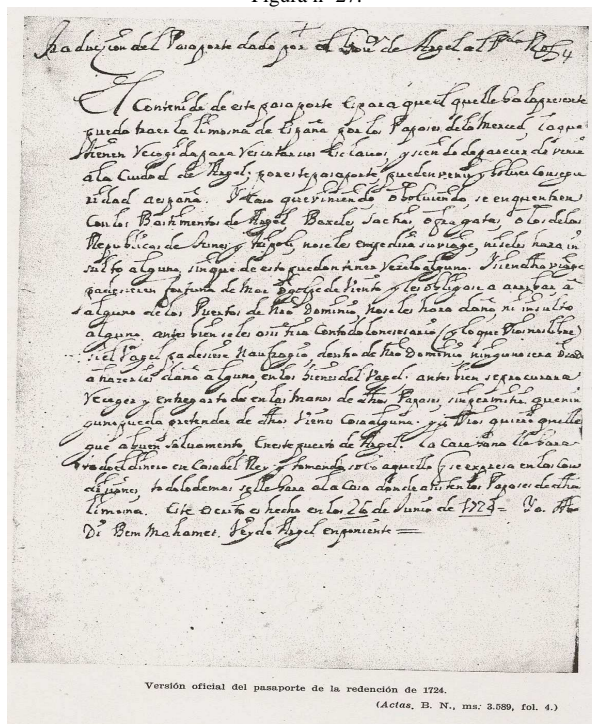 Figura nº 27.
Traducion del Pasaporte dado por el Gov.or de Argel al P.e Red.or
4
El Contenido de este pasaporte Es para que el que lleba la presente
pueda traer la limosna de España por los Papases de la Merced, la que
tienen Recogida para Rescatar sus Esclavos, y siendo de parecer de venir
a la Ciudad de Argel; por este pasaporte, pueden venir y bolver con segu
ridad a españa. Y Caso que viniendo o bolviendo, se enquentren
Con los Bastimentos de Argel Baxeles, Saetias, o fragatas, o los de las
Republicas de Tunez y Tripoli, no se les empedira su viage, ni se les hara in
sulto alguno, sin que de esto puedan tener Rezelo alguno. Y si en dho viage
padeciesen fortuna de Mar, o golpe de Viento y les obligase a arribar a
alguno de los Puertos de Nro Dominio, no se les hara daño, ni insulto
alguno, antes bien se les asistira Con todo lo necesario (y lo que Dios no lo libre)
si el Vagel padeciere Naufragio, dentro de Nro Dominio ninguno sera osado
a hazerles daño alguno en los bienes del Vagel: antes bien se procurara
Recoger y entregar todos en las Manos de dhos Papases, sin permitir que nin
guno pueda pretender de dhos bienes Cosa alguna. y si Dios quiere que llegue
a buen Salvamento En este puerto de Argel. la Carabana llebara
todo el dinero en Casa del Rey: y tomando solo aquello q se expresa en las Con
diciones, todo lo demas se llebara a la Casa donde asisten los Papases de dha
limosna. Este Escrito es hecho en los 26 de Junio de 1724= Yo. Ab
Di Bem Mahamet. Rey de Argel en poniente =
Versión oficial del pasaporte de la redención de 1724.
(Actas, B. N., ms: 3.589, fol. 4.)